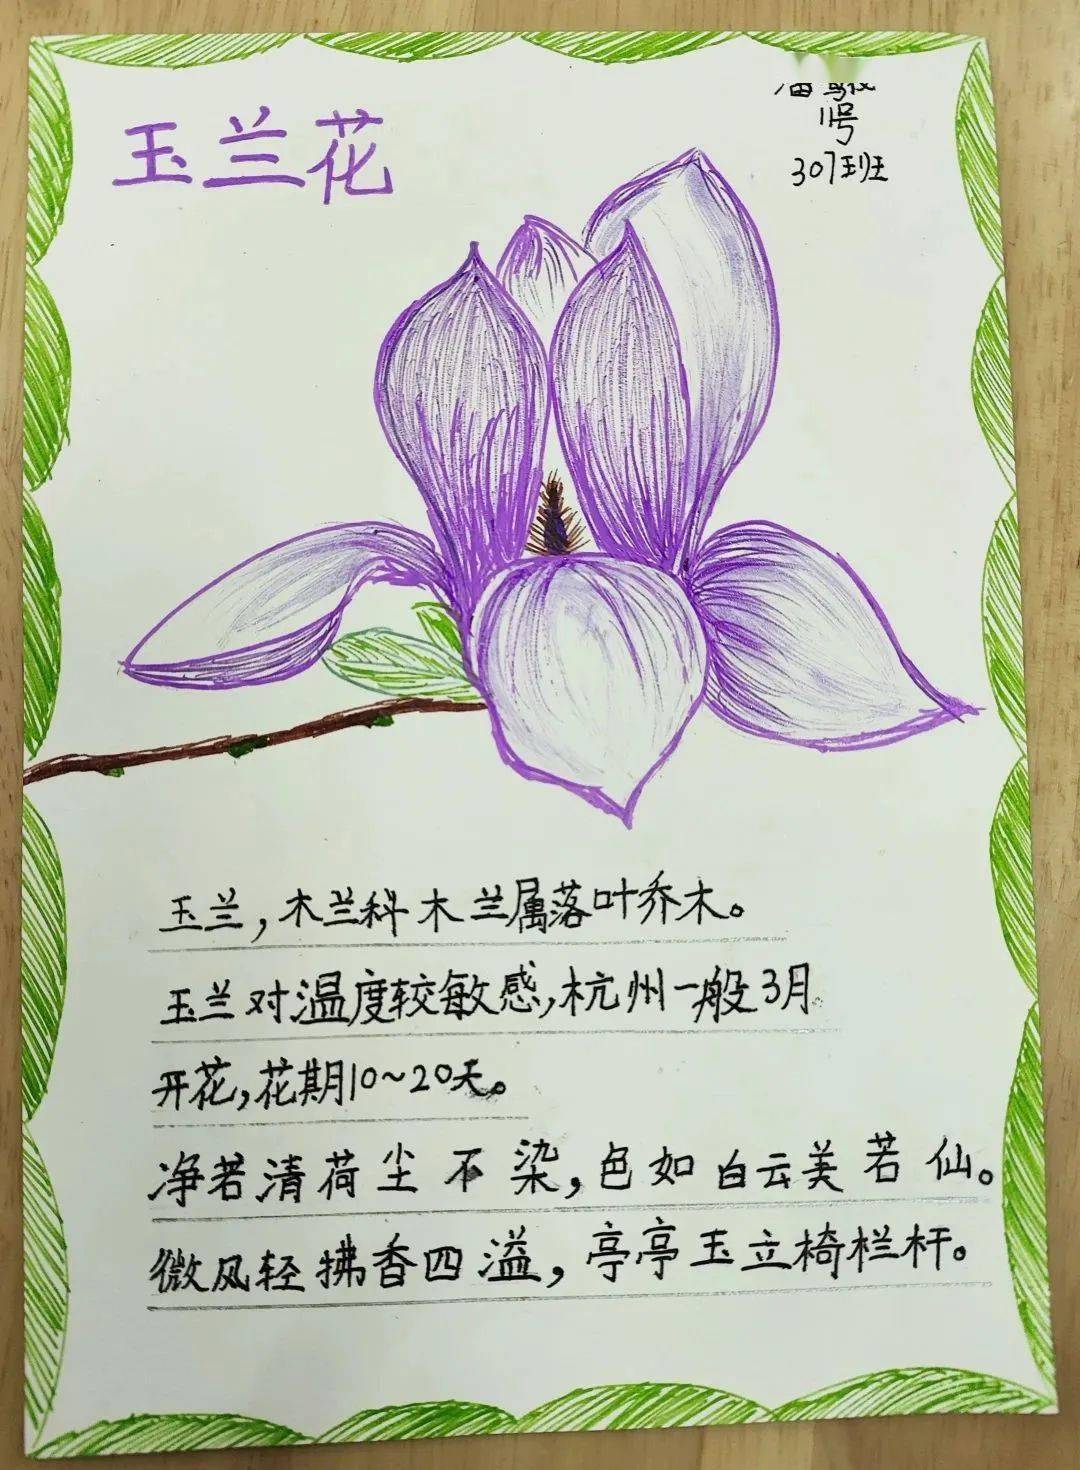 玉兰花
11号
307班
玉兰,木兰科木兰属落叶乔木。
玉兰对温度较敏感,杭州一般3月
开花,花期10~20天。
净若清荷尘不染,色如白云美若仙。
微风轻拂香四溢,亭亭玉立椅栏杆。